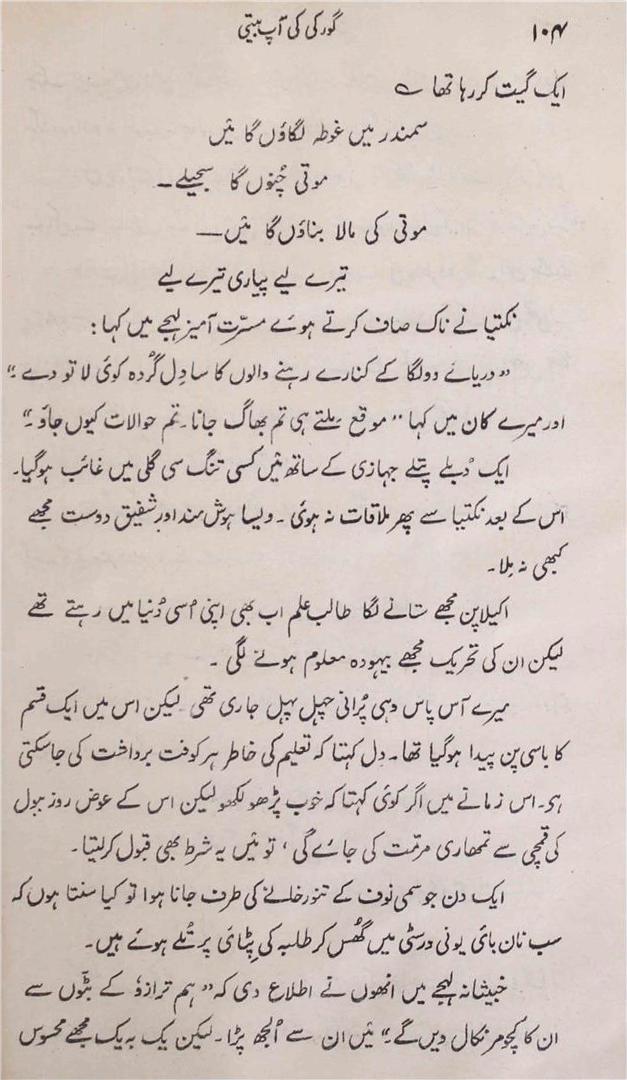 ۱۰۴ گورکی کی آپ بیتی
ایک گیت کر رہا تھا ؎
سمندر میں غوطہ لگاؤں گا مَیں
موتی چُنوں گا سجیلے۔
موتی کی مالا بناؤں گا مَیں۔
تیرے لیے پیاری تیرے لیے
نکتیا نے ناک صاف کرتے ہوئے مسرّت آمیز لہجے میں کہا :
”دریائے وولگا کے کنارے رہنے والوں کا سا دِل گُردہ کوئی لا تو دے۔“
اور میرے کان میں کہا ”موقع مِلتے ہی تم بھاگ جانا۔ تم حوالات کیوں جاؤ۔“
ایک دُبلے پتلے جہازی کے ساتھ مَیں کسی تنگ سی گلی میں غائب ہوگیا۔
اس کے بعد نکتیا سے پھر ملاقات نہ ہوئی۔ ویسا ہوش مند اور شفیق دوست مجھے
کبھی نہ مِلا۔
اکیلا پن مجھے ستانے لگا طالب علم اب بھی اپنی اُسی دُنیا میں رہتے تھے
لیکن ان کی تحریک مجھے بیہودہ معلوم ہونے لگی۔
میرے آس پاس وہی پُرانی چہل پہل جاری تھی۔ لیکن اس میں ایک قسم
کا باسی پن پیدا ہوگیا تھا۔ دِل کہتا کہ تعلیم کی خاطر ہر کوفت برداشت کی جاسکتی
ہی۔ اس زمانے میں اگر کوئی کہتا کہ خوب پڑھو لکھو لیکن اس کے عوض روز ببول
کی قمچی سے تمھاری مرمّت کی جائے گی، تو مَیں یہ شرط بھی قبول کرلیتا۔
ایک دن جو سمی نوف کے تنور خانے کی طرف جانا ہوا تو کیا سنتا ہوں کہ
سب نان بائی یونی ورسٹی میں گھُس کر طلبہ کی پِٹائی پر تُلے ہوئے ہیں۔
خبیثانہ لہجے میں انھوں نے اطلاع دی کہ ”ہم ترازوُ کے بٹّوں سے
ان کا کچومر نکال دیں گے۔“ مَیں ان سے اُلجھ پڑا۔ لیکن یک بہ یک مجھے محسوس